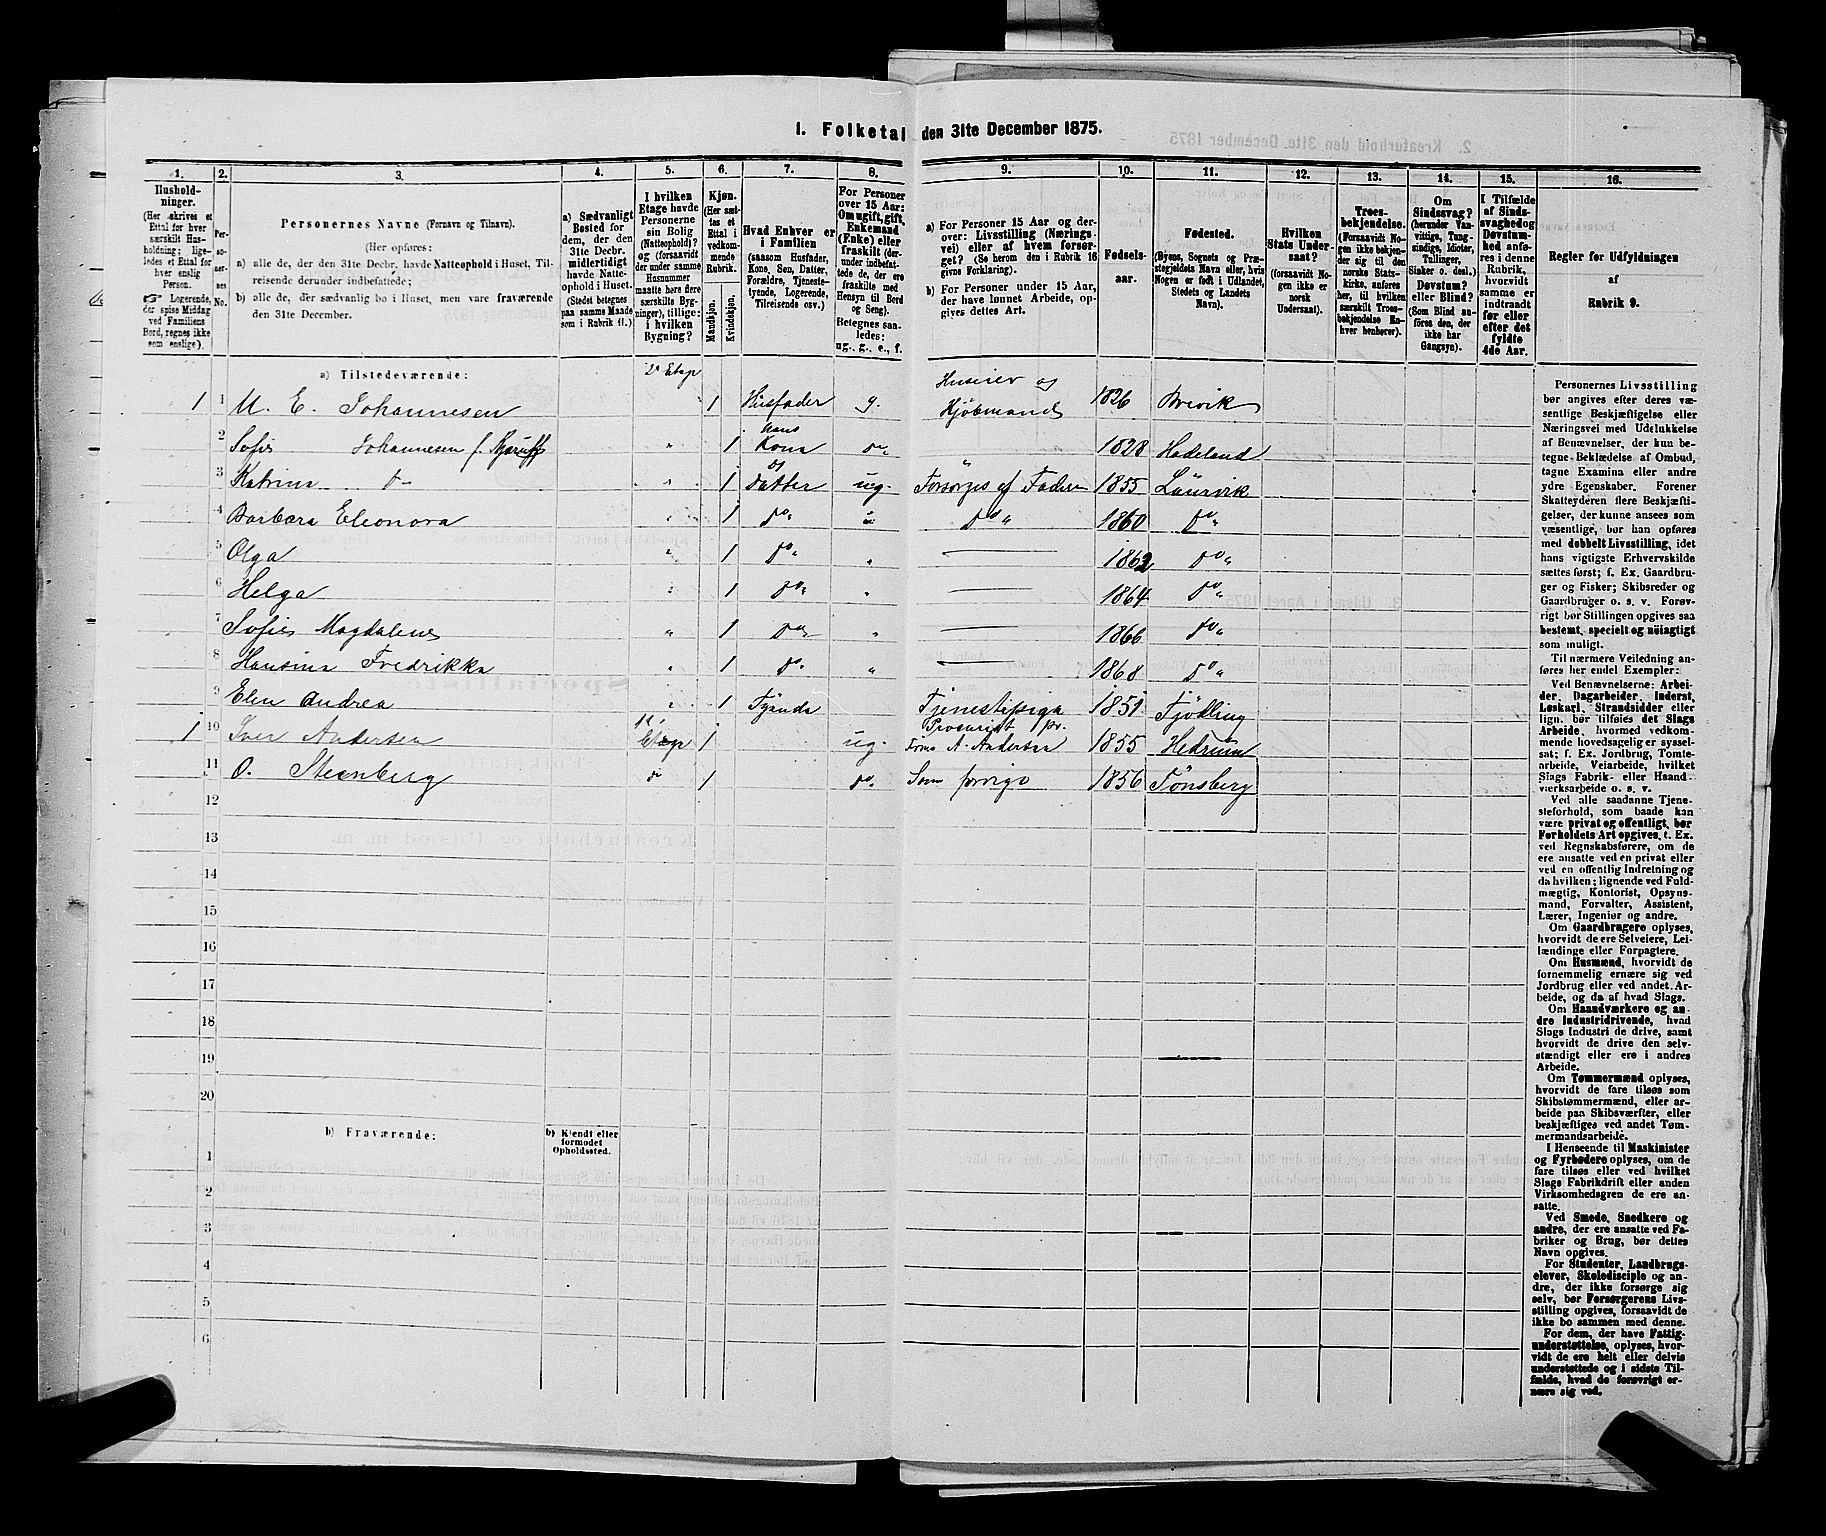 1. Folketal den 31te December 1875.
1. 2. 3. 4. 5. 6. 7. 8. 9. 10. 11. 12. 13. 14. 15. 16.
Hushold-
ninger.
(Her skrives et
Ettal for hver
særskilt Hus-
holdning; lige-
ledes et Ettal for
hver enslig
Person.
Logerende,
der spise Middag
ved Familiens
Bord, regnes ikke
som enslige).
Per-
so-
ner-
nes
No.
Personernes Navne (Fornavn og Tilnavn).
(Her opføres:
a) alle de, der den 31te Decbr. havde Natteophold i Huset, Til-
reisende derunder indbefattede;
b) alle de, der sædvanlig bo i Huset, men vare fraværende
den 31te December.
a) Sædvanligt
Bosted for
dem, der den
31te Decbr.
midlertidigt
havde Natte-
ophold i Huset.
(Stedet betegnes
paa samme Maade
som i Rubrik 11.)
I hvilken
Etage havde
Personerne
sin Bolig
(Natteophold)?
og (forsaavidt
der under samme
Husnummer
maatte høre flere
særskilte Byg-
ninger), tillige:
i hvilken
Bygning?
Kjøn.
(Her sæt-
tes et
Ettal i
vedkom-
mende
Rubrik.
Mandkjøn.
Kvindekjøn.
Hvad Enhver er
i Familien
(saasom Husfader,
Kone, Søn, Datter,
Forældre, Tjeneste-
tyende, Logerende,
Tilreisende osv.)
For Personer
over 15 Aar:
Om ugift, gift,
Enkemand
(Enke) eller
fraskilt (der-
under indbefat-
tede de, der ere
fraskilte med
Hensyn til Bord
og Seng).
Betegnes saa-
ledes:
ug., g., e., f.
a) For Personer 15 Aar og der-
over: Livsstilling (Nærings-
vei) eller af hvem forsør-
get? (Se herom den i Rubrik 16
givne Forklaring).
b) For Personer under 15 Aar,
der have lønnet Arbeide, op-
gives dettes Art.
Fødsels-
aar.
Fødested.
(Byens, Sognets og Præ-
stegjeldets Navn eller, hvis
Nogen er født i Udlandet,
Stedets og Landets
Navn).
Hvilken
Stats Under-
saat?
(forsaavidt No-
gen ikke er
norsk
Undersaat).
Troes-
bekjendelse.
(Forsaavidt No-
gen ikke bekjen-
der sig til den
norske Stats-
kirke, anføres
her, til hvilken
særskilt Troes-
bekjendelse En-
hver henhører).
Om
Sindssvag?
(herunder Van-
vittige, Tung-
sindige, Idioter,
Tullinger,
Sinker o. desl.)
Døvstum?
eller Blind?
(Som Blind an-
føres den, der
ikke har
Gangsyn).
I Tilfælde
af Sinds-
svaghed og
Døvstum-
hed anfø-
res i denne
Rubrik,
hvorvidt
samme er
indtraadt
før eller
efter det
fyldte
4de Aar.
Regler for Udfyldningen
af
Rubrik 9.
a) Tilstedeværende: 2n Etage
1 1 M. E. Johannesen 1 Husfader g. Huseier og Kjøbmand 1826 Brevik
2 Sofie Johannesen f. 1 hans Kone do 1828 Hadeland
3 Katrina do 1 Datter ug. Forsørges af Faderen 1855 Laurvik
4 Barbara Eleonora 1 do do 1860 do
5 Olga 1 do 1862 do
6 Helga 1 do 1864 do
7 Sofie Magdalene 1 do 1866 do
8 Hansine Fredrikka 1 do 1868 do
9 Elen Andrea 1 Tyende Tjenestepige 1851 Fjödling
1 10 Iver Andersen Etage 1 ug. Procurist pr. Firma A. Andersen 1855 Hedrum
11 O. Steenberg do 1 do Som forrige 1856 Tönsberg
12
13
14
15
16
17
18
19
20
b) Fraværende:
b) Kjendt eller
formodet
Opholdssted.
1
2
3
4
5
6
Personernes Livsstilling
bør angives efter deres væ-
sentlige Beskjæftigelse eller
Næringsvei med Udelukkelse
af Benævnelser, der kun be-
tegne Beklædelse af Ombud,
tagne Examina eller andre
ydre Egenskaber. Forener
Skatteyderen flere Beskjæfti-
gelser, der kunne ansees som
væsentlige, bør han opføres
med dobbelt Livsstilling, idet
hans vigtigste Erhvervskilde
sættes først; f. Ex. Gaardbru-
ger og Fisker; Skibsreder og
Gaardbruger o. s. v. Forøv-
rigt bør Stillingen opgives saa
bestemt, specielt og nøiagtigt
som muligt.
Til nærmere Veiledning an-
føres her endel Exempler:
Ved Benævnelserne: Arbei-
der, Dagarbeider, Inderst,
Løskarl, Strandsidder eller
lign. bør tilføies det Slags
Arbeide, hvormed vedkom-
mende hovedsagelig er syssel-
sat; f. Ex. Jordbrug, Tomte-
arbeide, Veiarbeide, hvilket
Slags Fabrik- eller Haand-
værksarbeide o. s. v.
Ved alle saadanne Tjene-
steforhold, som baade kan
være privat og offentligt, bør
Forholdets Art opgives, t. Ex.
ved Regnskabsførere, om de
ere ansatte ved en privat eller
ved en offentlig Indretning og
da hvilken; lignende ved Fuld-
mægtig, Kontorist, Opsyns-
mand, Forvalter, Assistent,
Lærer, Ingeniør og andre.
Om Gaardbrugere oplyses,
hvorvidt de ere Selveiere, Lei-
lændinge eller Forpagtere.
Om Husmænd, hvorvidt de
fornemmelig ernære sig ved
Jordbrug eller ved andet Ar-
beide, og da af hvad Slags.
Om Haandværkere og an-
dre Industridrivende, hvad
Slags Industri de drive, samt
hvorvidt de drive den selv-
stændigt eller ere i andres
Arbeide.
Om Tømmermænd oplyses,
hvorvidt de fare tilsøs som
Skibstømmermænd, eller ar-
beide paa Skibsværfter, eller
beskjæftiges ved andet Tøm-
mermandsarbeide.
I Henseende til Maskinister
og Fyrbødere oplyses, om de
fare tilsøs eller ved hvilket
Slags Fabrikdrift eller anden
Virksomhedsgren de ere an-
satte.
Ved Smede, Snedkere og
andre, der ere ansatte ved Fa-
briker og Brug, bør dettes
Navn opgives.
For Studenter, Landbrugs-
elever, Skoledisciple og an-
dre, der ikke forsørge sig
selv, bør Forsørgerens Livs-
stilling opgives, forsaavidt de
ikke bo sammen med denne.
For dem, der have Fattig-
understøttelse, oplyses, hvor-
vidt de ere helt eller delvis
understøttede og i sidste Til-
fælde, hvad de forøvrigt er-
nære sig ved.